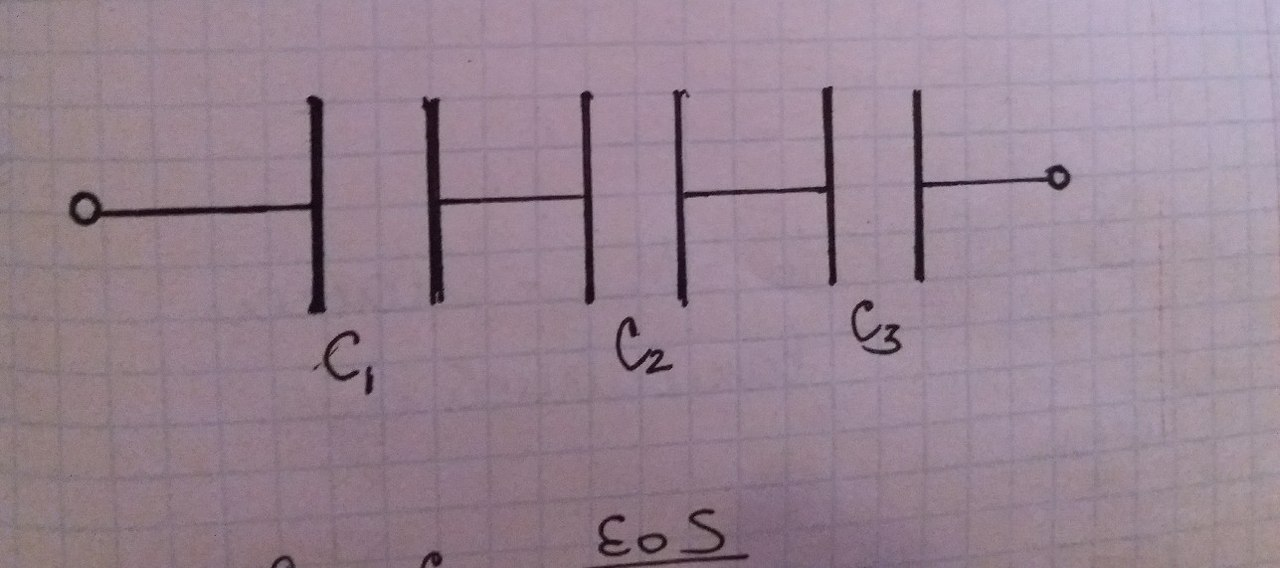 C₁ C₂ C₃
ε₀S